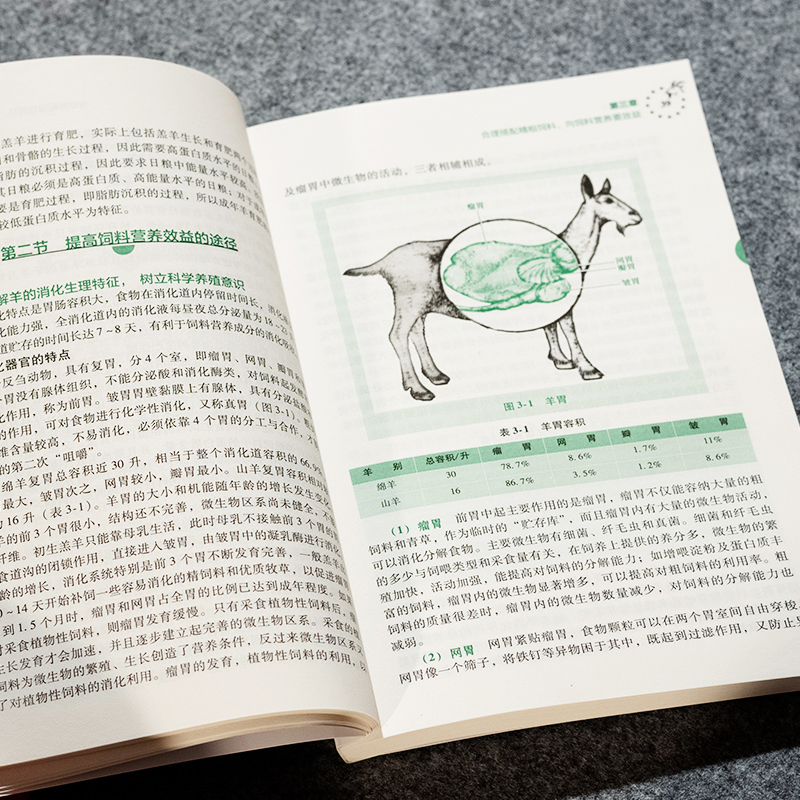 羔羊进行育肥，实际上包括羔羊生长和育肥两个
和骨骼的生长过程，因此需要高蛋白质水平的日
脂肪的沉积过程，因此要求日粮中能量水平较高
其日粮必须是高蛋白质、高能量水平的日粮；对于
要是育肥过程，即脂肪沉积的过程，所以成年羊育肥
较低蛋白质水平为特征。
第二节 提高饲料营养效益的途径
解羊的消化生理特征， 树立科学养殖意识
化特点是胃肠容积大，食物在消化道内停留时间长，消化
化能力强，全消化道内的消化液每昼夜总分泌量为18～23
道贮存的时间长达7～8天，有利于饲料营养成分的消化吸
化器官的特点
反刍动物，具有复胃，分4个室，即瘤胃、网胃、瓣胃
胃没有腺体组织，不能分泌酸和消化酶类，对饲料起发
化作用，称为前胃。皱胃胃壁黏膜上有腺体，具有分泌盐
的作用，可对食物进行化学性消化，又称真胃（图3-1）。
维含量较高，不易消化，必须依靠4个胃的分工与合作，才
的第二次“咀嚼”。
绵羊复胃总容积近30升，相当于整个消化道容积的66.9%
最大，皱胃次之，网胃较小，瓣胃最小。山羊复胃容积相对
为16升（表3-1）。羊胃的大小和机能随年龄的增长发生变
羊的前3个胃很小，结构还不完善，微生物区系尚未健全，不
纤维。初生羔羊只能靠母乳生活，此时母乳不接触前3个胃的
食道沟的闭锁作用，直接进入皱胃，由皱胃中的凝乳酶进行消化
龄的增长，消化系统特别是前3个胃不断发育完善，一般羔羊
0～14天开始补饲一些容易消化的精饲料和优质牧草，以促进瘤胃
到1.5个月时，瘤胃和网胃占全胃的比例已达到成年程度。如
对采食植物性饲料，则瘤胃发育缓慢。只有采食植物性饲料后，
生长发育才会加速，并且逐步建立起完善的微生物区系。采食的
饲料为微生物的繁殖、生长创造了营养条件，反过来微生物区系
了对植物性饲料的消化利用。瘤胃的发育，植物性饲料的利用，以
第三章
合理搭配精粗饲料，向饲料营养要效益
39
及瘤胃中微生物的活动，三者相辅相成。
瘤胃
网胃
瓣胃
皱胃
图3-1 羊胃
表3-1 羊胃容积
羊 别 总容积/升 瘤 胃 网 胃 瓣 胃 皱 胃
绵羊 30 78.7% 8.6% 1.7% 11%
山羊 16 86.7% 3.5% 1.2% 8.6%
（1）瘤胃 前胃中起主要作用的是瘤胃，瘤胃不仅能容纳大量的粗
饲料和青草，作为临时的“贮存库”，而且瘤胃内有大量的微生物活动，
可以消化分解食物。主要微生物有细菌、纤毛虫和真菌。细菌和纤毛虫
的多少与饲喂类型和采食量有关，在饲养上提供的养分多，微生物的繁
殖加快，活动加强，能提高对饲料的分解能力；如增喂淀粉及蛋白质丰
富的饲料，瘤胃内的微生物显著增多，可以提高对粗饲料的利用率。粗
饲料的质量很差时，瘤胃内的微生物数量减少，对饲料的分解能力也
减弱。
（2）网胃 网胃紧贴瘤胃，食物颗粒可以在两个胃室间自由穿梭。
网胃像一个筛子，将铁钉等异物困于其中，既起到过滤作用，又防止